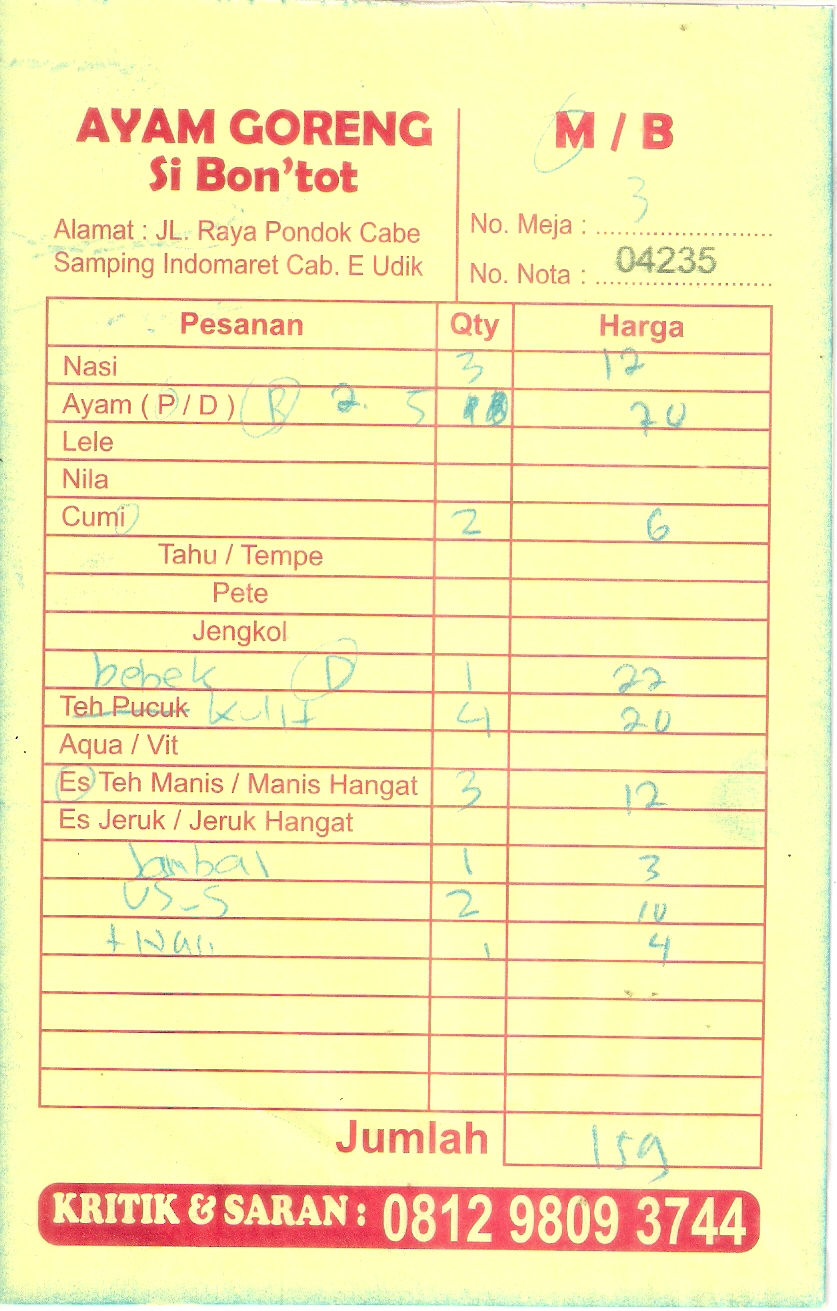 AYAM GORENG
Si Bon'tot
Alamat : JL. Raya Pondok Cabe
Samping Indomaret Cab. E Udik
M / B
No. Meja : 3
No. Nota : 04235
Pesanan Qty Harga
Nasi 3 12
Ayam ( P / D ) B 2. 5 70
Lele
Nila
Cumi 2 6
Tahu / Tempe
Pete
Jengkol
bebek D 1 22
Teh Pucuk kulit 4 20
Aqua / Vit
Es Teh Manis / Manis Hangat 3 12
Es Jeruk / Jeruk Hangat
Jambal 1 3
US_S 2 10
+ Nasi 1 4
Jumlah 159
KRITIK & SARAN : 0812 9809 3744